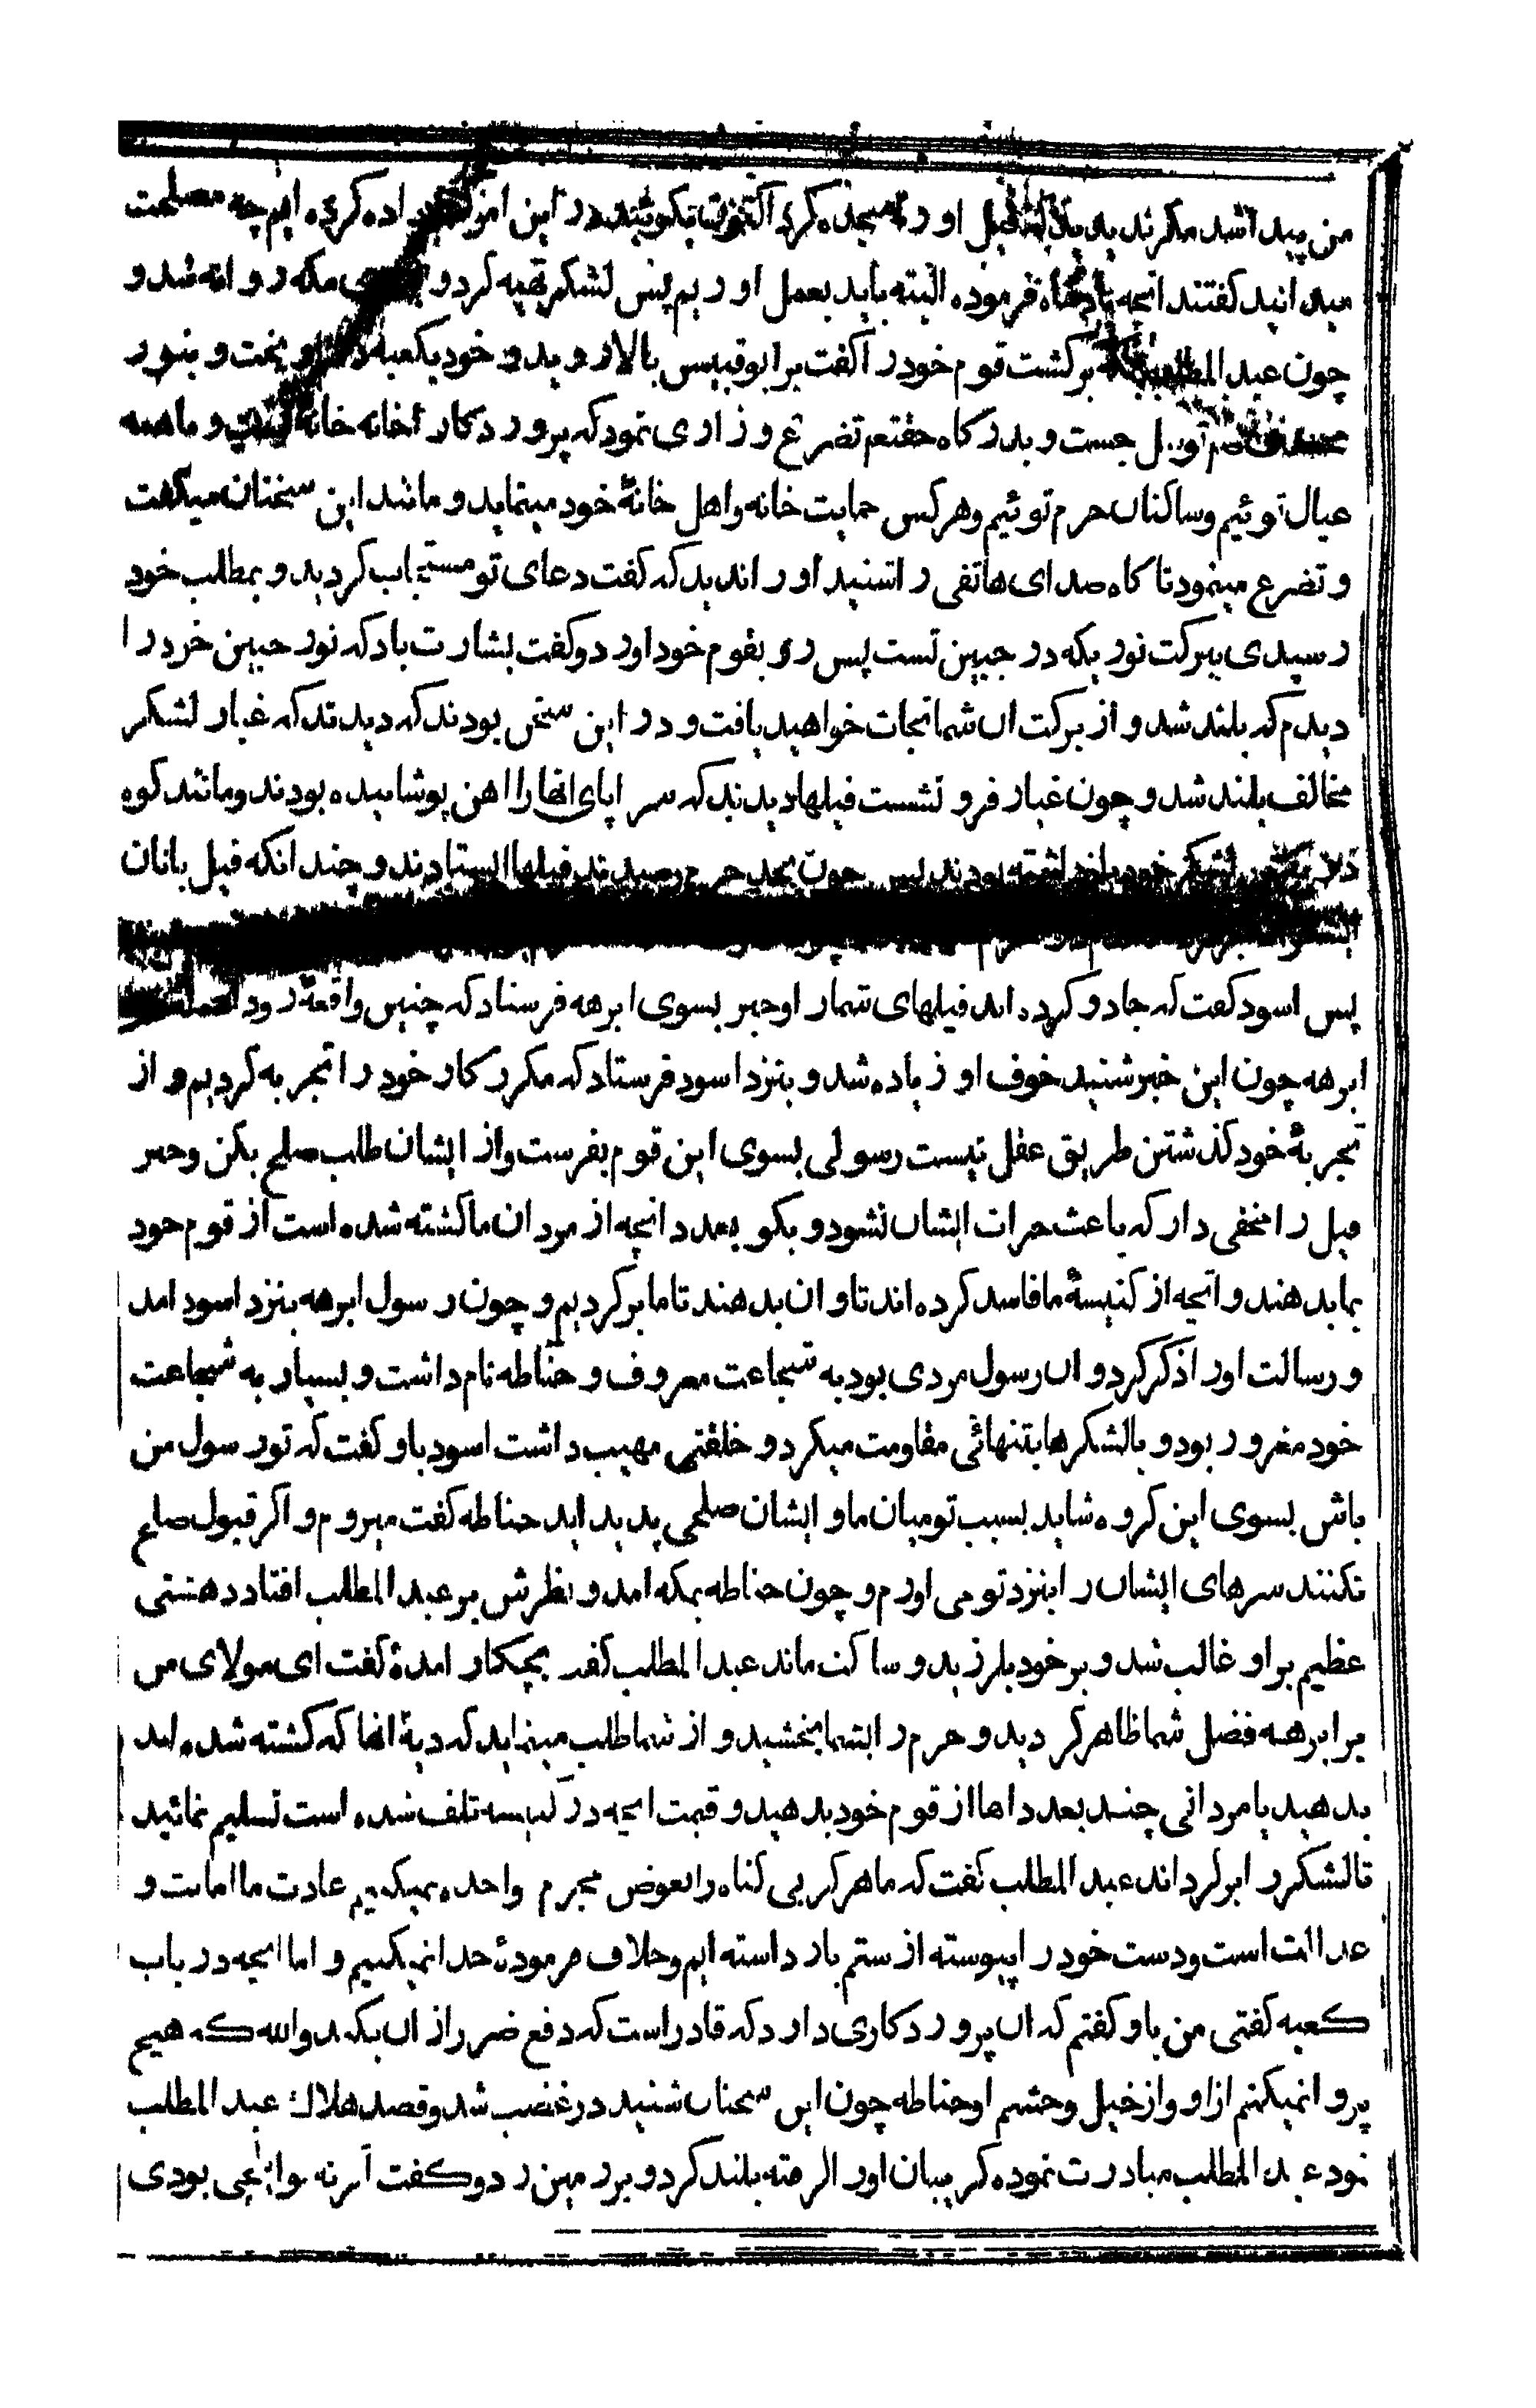 من پیدا شد مگر ندیدید که فیل او را سجده کرد اکنون بگوئید در این امر که اراده کرده ایم چه مصلحت
میدانید گفتند انچه پادشاه فرموده البته باید بعمل اوریم پس لشکر تهیه کرد و مکه روانه شد و
چون عبد المطلب برگشت قوم خود را گفت بر ابو قبیس بالا روید و خود بکعبه در اویخت و بنور
توسل جست و بدرگاه حقتعم تضرع و زاری نمود که پروردگارا خانه خانه و ما همه
عیال توئیم و ساکنان حرم توئیم و هر کس حمایت خانه و اهل خانۀ خود مینماید و مانند این سخنان میگفت
و تضرع مینمود تا گاه صدای هاتفی را شنید او را ندید که گفت دعای تو مستجاب گردید و بمطلب خود
رسیدی ببرکت نوریکه در جبین تست پس رو بقوم خود اورد و گفت بشارت باد که نور جبین خود را
دیدم که بلند شد و از برکت ان شما نجات خواهید یافت و در این سخن بودند که دیدند که غبار لشکر
مخالف بلند شد و چون غبار فرو نشست فیلها دیدند که سراپای انها را اهن پوشانیده بودند و مانند کوه
لشکر خود باز داشته بودند پس چون بحد حرم رسیدند فیلها ایستادند و چند انکه فیل بانان
پس اسود گفت که جادو کرده اند فیلهای شما را و خبر بسوی ابرهه فرستاد که چنین واقعۀ رود
ابرهه چون این خبر شنید خوف او زیاده شد و بنزد اسود فرستاد که مکرر کار خود را تجربه کردیم و از
تجربۀ خود گذشتن طریق عقل نیست رسولی بسوی این قوم بفرست و از ایشان طلب صلح بکن و خبر
فیل را مخفی دار که باعث جرات ایشان نشود و بگو بعدد انچه از مردان ما کشته شده است از قوم خود
بما بدهند و انچه از کنیسۀ ما فاسد کرده اند تاوان بدهند تا ما برگردیم و چون رسول ابرهه بنزد اسود امد
و رسالت او را ذکر کرد و ان رسول مردی بود به شجاعت معروف و حناطه نام داشت و بسیار به شجاعت
خود مغرور بود و بالشکرها بتنهائی مقاومت میکرد و خلقتی مهیب داشت اسود باو گفت که تو رسول من
باش بسوی این گروه شاید بسبب تو میان ما و ایشان صلحی پدید اید حناطه گفت میروم و اگر قبول صلح
نکنند سرهای ایشان را بنزد تو می اورم و چون حناطه بمکه امد و نظرش بر عبد المطلب افتاد دهشتی
عظیم بر او غالب شد و بر خود بلرزید و ساکت ماند عبد المطلب گفت بچکار امدۀ گفت ای مولای من
بر ابرهه فضل شما ظاهر گردید و حرم را بشما بخشید و از شما طلب مینماید که دیۀ انها که کشته شده اند
بدهید یا مردانی چند بعدد انها از قوم خود بدهید و قیمت انچه در کنیسه تلف شده است تسلیم نمائید
تا لشکر را برگرداند عبد المطلب گفت که ما هرگز بی گناه را بعوض مجرم واخذه نمیکنیم عادت ما امانت و
عدالت است و دست خود را پیوسته از ستم باز داشته ایم و خلاف فرمودۀ خدا نمیکنیم و اما انچه در باب
کعبه گفتی من باو گفتم که ان پروردگاری دارد که قادر است که دفع ضرر از ان بکند والله که هیچ
پروا نمیکنم از او و از خیل و حشم او حناطه چون این سخنان شنید در غضب شد و قصد هلاک عبد المطلب
نمود عبد المطلب مبادرت نموده گریبان او را گرفته بلند کرد و بر زمین زد و گفت اگر نه تو ایلچی بودی